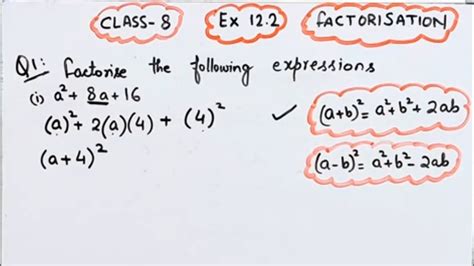 CLASS-8 Ex 12.2 FACTORISATION
Q1: Factorise the following expressions
(i) a² + 8a + 16
(a)² + 2(a)(4) + (4)²
(a+4)²
✓ (a+b)² = a²+b²+2ab
(a-b)² = a²+b²-2ab